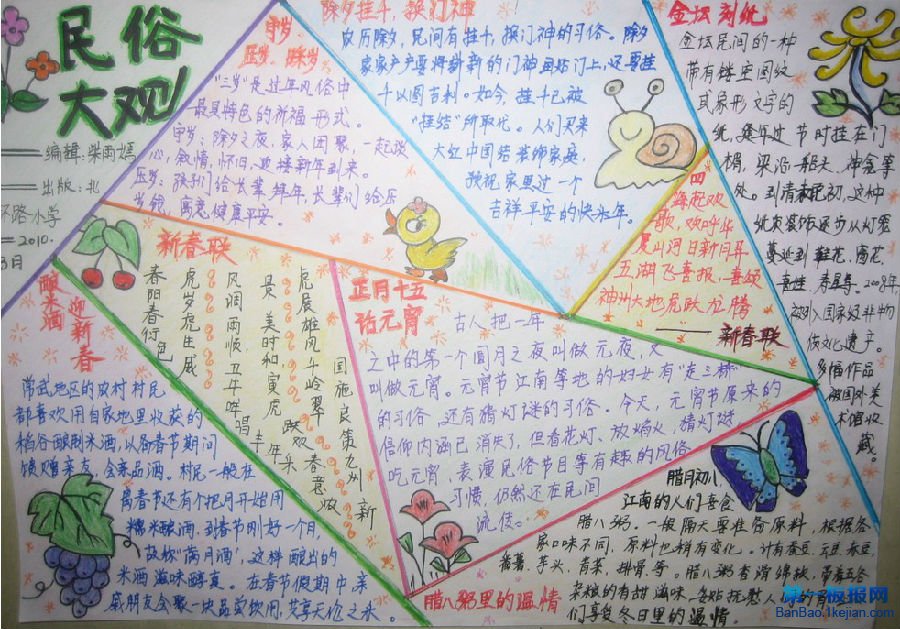 民俗
大观
编辑:柴雨嫣
出版:北
环路小学
2010.
3月
守岁、
压岁、踩岁
"三岁"是过年风俗中
最具特色的祈福形式。
守岁:除夕之夜,家人团聚,一起谈
心,叙情,怀旧,迎接新年到来。
压岁:孩子们给长辈拜年,长辈们给压
岁钱,寓意健康平安。
除夕挂千,换门神
农历除夕,民间有挂千,换门神的习俗。除夕
家家户户要将新新的门神画贴门上,还要挂
千以图吉利。如今,挂千已被
"挂结"所取代。人们买来
大红中国结装饰家庭,
预祝家里过一个
吉祥平安的快乐年。
金坛刻纸
金坛民间的一种
带有镂空图纹
或象形文字的
纸,逢年过节时挂在门
楣,梁沿、船头、神龛等
处。到清末民初,这种
纸花装饰逐步从灯彩
蔓延到鞋花,窗花,
喜娃、寿屏等。2008年
被列入国家级非物
质文化遗产。
多幅作品
被国外美
术馆收
藏。
四
海起欢
歌,欢呼华
夏山河日新月异
五湖飞喜报,喜颂
神州大地虎跃龙腾
——新春联
新春联
春阳春行色
虎岁虎生威
风调雨顺丰年
景美时和寅虎
虎展雄风千岭翠
国施良策九州新
正月十五
话元宵
古人把一年
之中的第一个圆月之夜叫做元夜,又
叫做元宵。元宵节江南等地的妇女有"走三桥"
的习俗,还有猜灯谜的习俗。今天,元宵节原来的
信仰内涵已消失了,但看花灯、放焰火、猜灯谜
吃元宵、表演民俗节目等有趣的风俗
习惯仍然还在民间
流传。
酿米酒
迎新春
常武地区的农村村民
都喜欢用自家地里收获的
稻谷酿制米酒,以备春节期间
馈赠亲友,会亲品酒。村民一般在
离春节还有个把月开始用
糯米酿酒,到春节刚好一个月,
故称"满月酒",这样酿出的
米酒滋味醇真。在春节假期中,亲
戚朋友会聚一块品尝饮用,共享天伦之乐。
腊八粥里的温情
腊月初八,
江南的人们喜食
腊八粥。一般隔天要准备原料,根据各
家口味不同,原料也稍有变化。计有蚕豆、云豆、赤豆、
番薯、芋头、青菜、排骨等。腊八粥香滑绵软,带着五谷
杂粮的有甜滋味,妥贴抚慰人
们享受冬日里的温情。
第一板报网
BanBao.1kejian.com